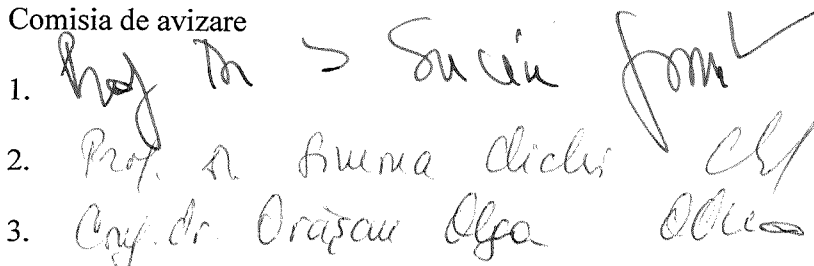 Comisia de avizare
1. Prof Dr S Suciu
2. Prof. Dr Simona Clichi
3. Conf. dr. Orășan Olga